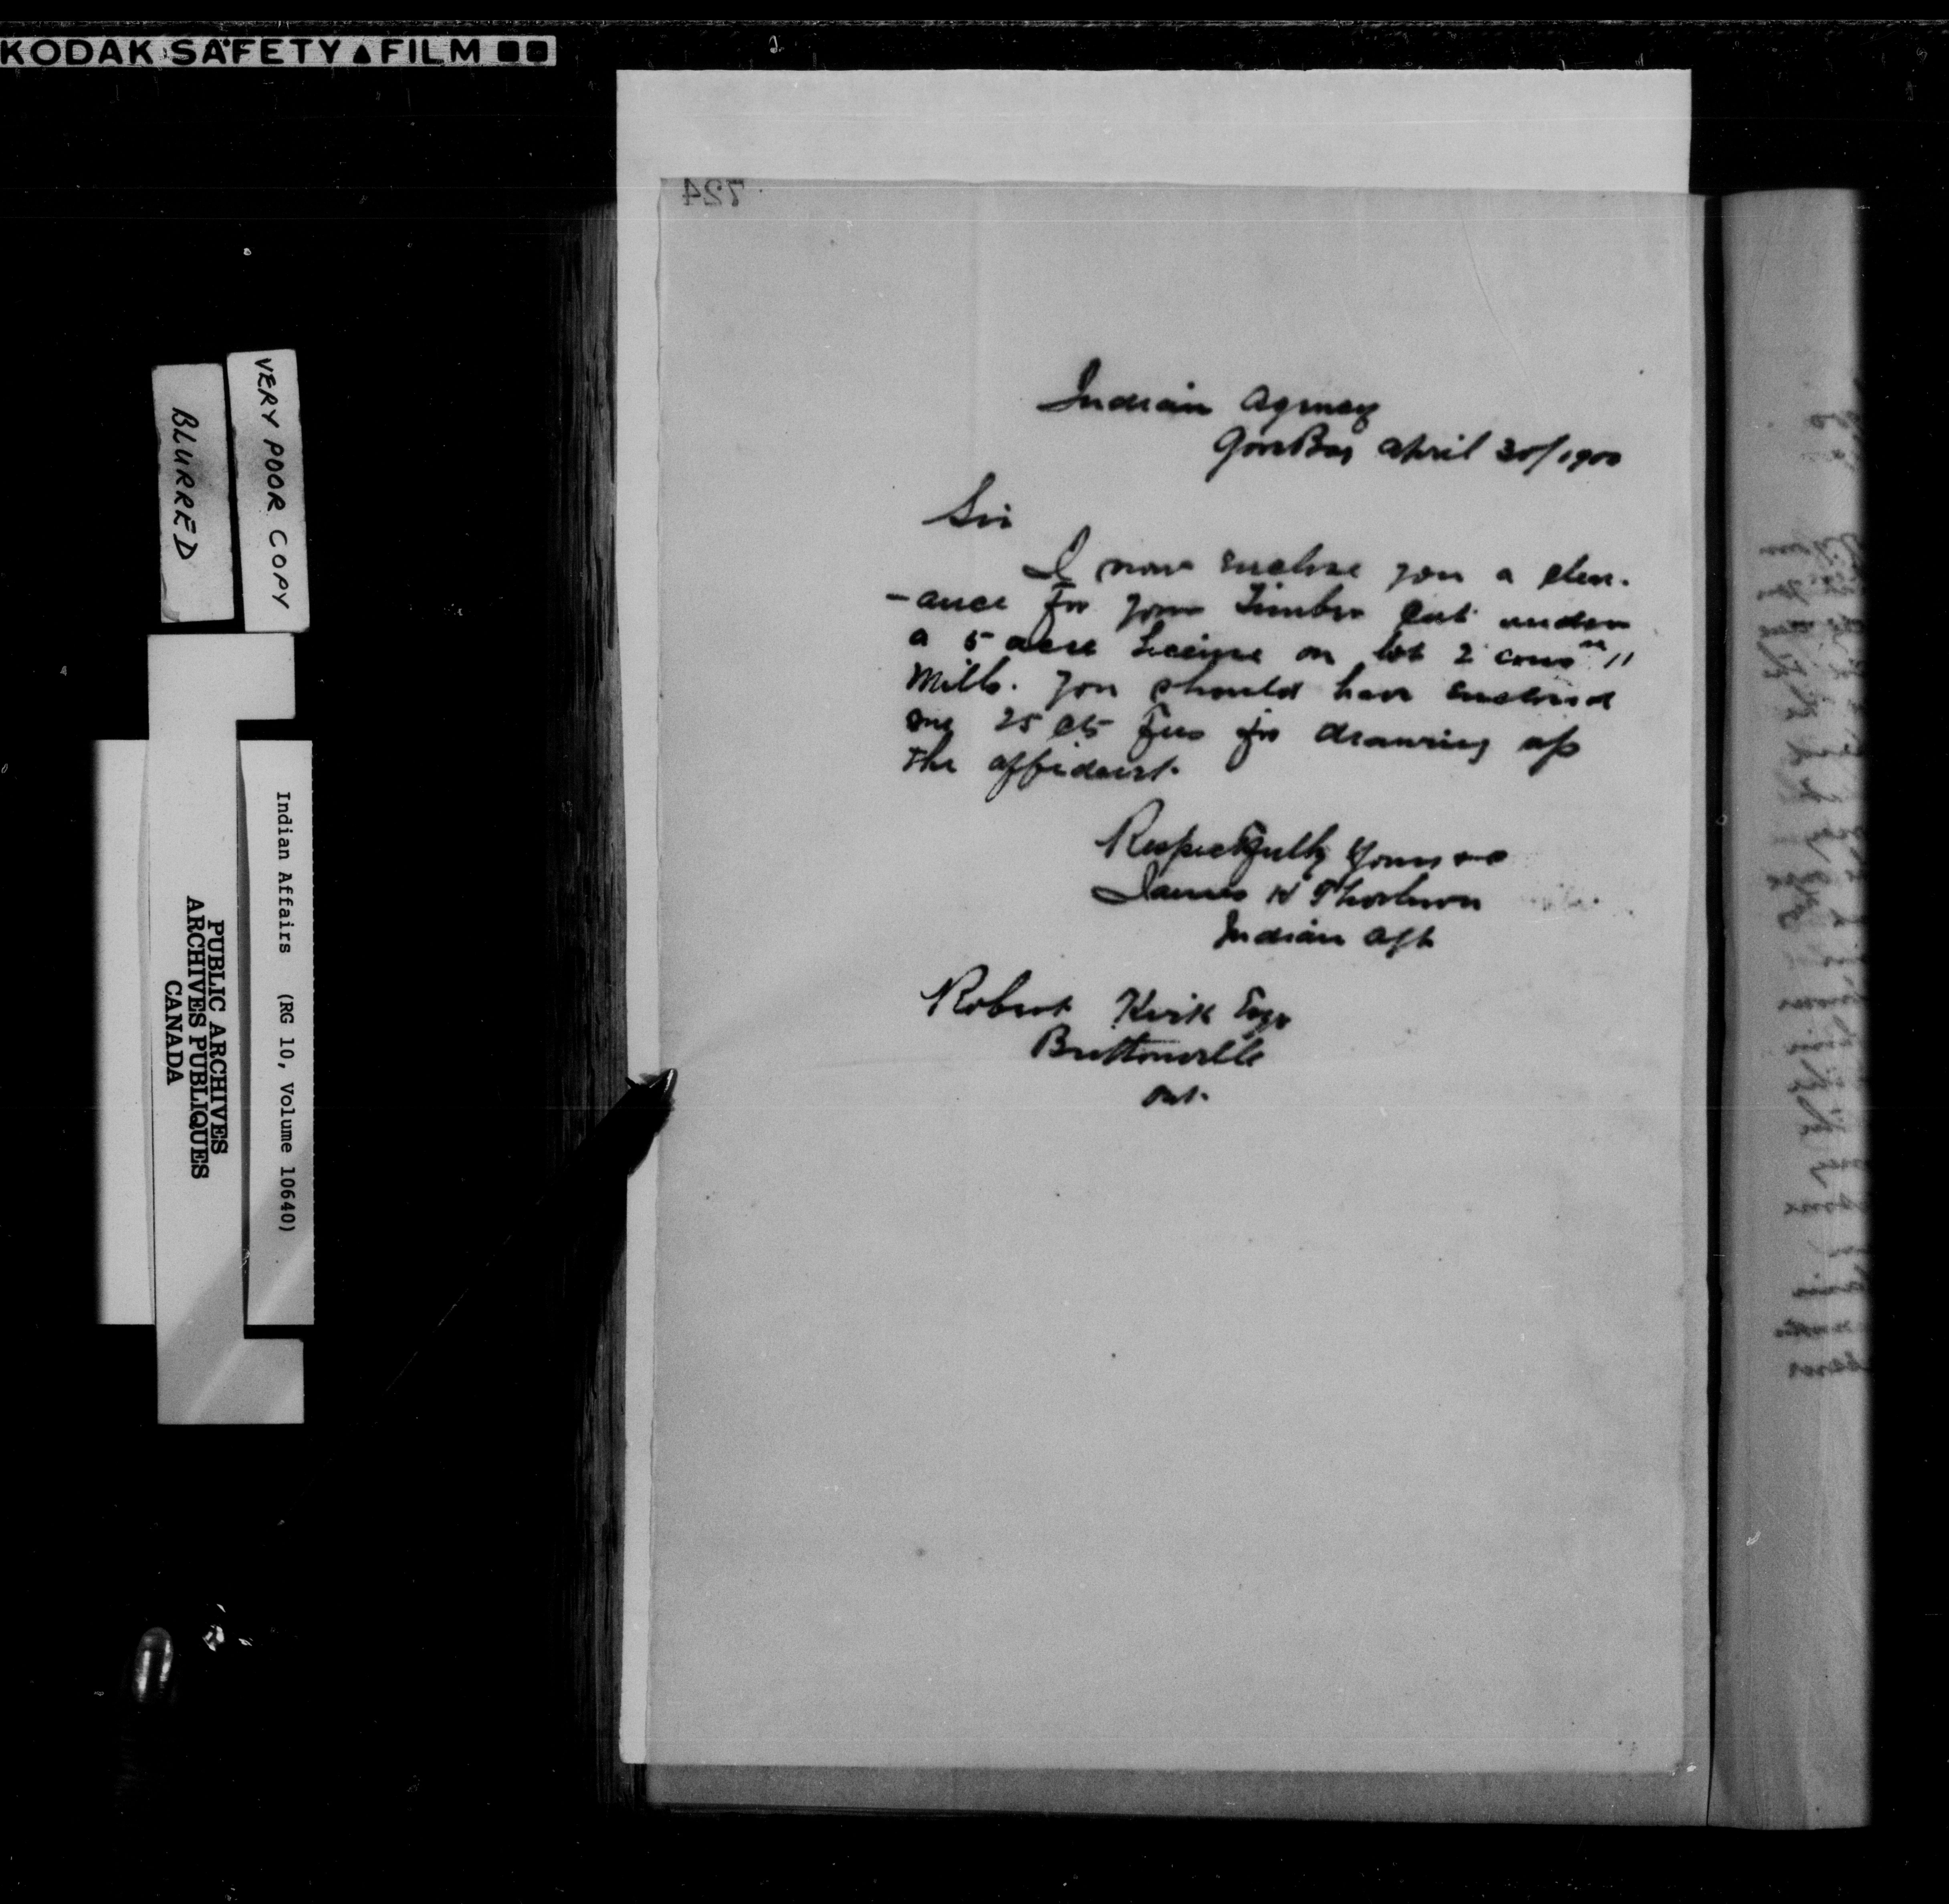 KODAK SAFETY FILM
724
VERY POOR COPY
BLURRED
Indian Affairs (RG 10, Volume 10640)
PUBLIC ARCHIVES
ARCHIVES PUBLIQUES
CANADA
Indian Agency
Gore Bay April 30/1900
Sir
I now enclose you a clear-
-ance for your Timber Cut under
a 5 acre License on lot 2 conss 11
Mills. You should have enclosed
me 25 cts Fees for drawing up
the affidavit.
Respectfully Yours
James H Thorburn
Indian Agt
Robert Kirk Esqr
Brittonville
Ont.